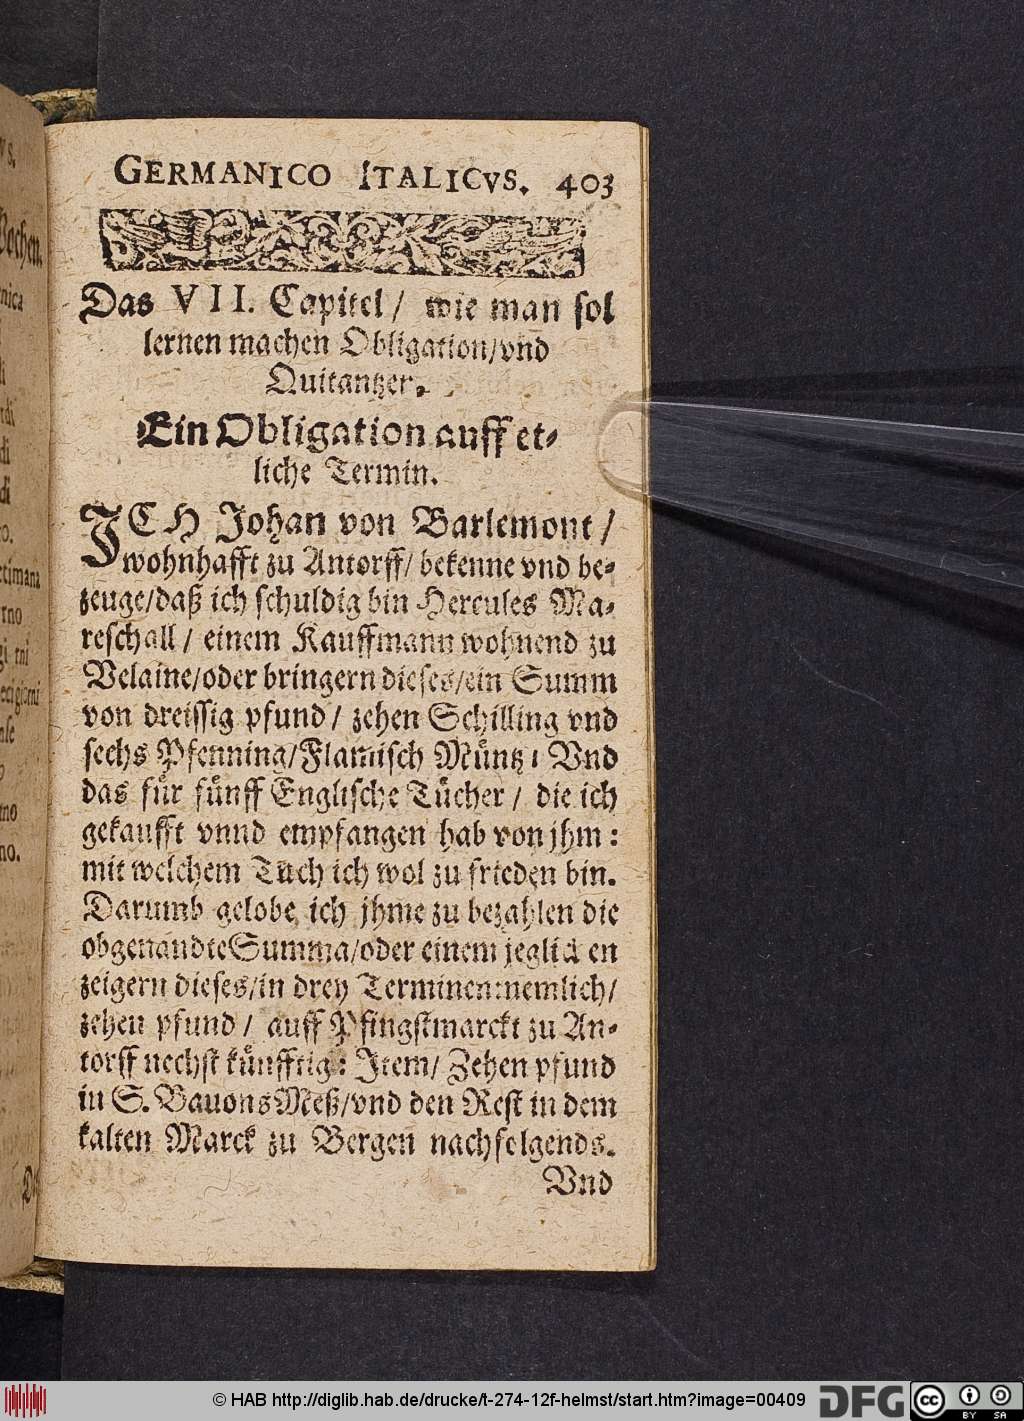 GERMANICO ITALICVS. 403
Das VII. Capitel / wie man sol
lernen machen Obligation/vnd
Quitantzer.
Ein Obligation auff et-
liche Termin.
ICH Johan von Barlemont /
wohnhafft zu Antorff/ bekenne vnd be-
zeuge/daß ich schuldig bin Hercules Ma-
reschall / einem Kauffmann wohnend zu
Velaine/oder bringern dieses/ein Summ
von dreissig pfund / zehen Schilling vnd
sechs Pfenning/Flamisch Müntz: Vnd
das für fünff Englische Tücher / die ich
gekaufft vnnd empfangen hab von jhm:
mit welchem Tuch ich wol zu frieden bin.
Darumb gelobe ich jhme zu bezahlen die
obgenandte Summa/oder einem jeglichen
zeigern dieses/in drey Terminen:nemlich/
zehen pfund / auff Pfingstmarckt zu An-
torff nechst künfftig: Item/ Zehen pfund
in S. Bauons Meß/vnd den Rest in dem
kalten Marck zu Bergen nachfolgends.
Vnd
vs.
Wochen.
nica
li
rdi
di
di
to.
ctimana
rno
gi tni
no
no.
© HAB http://diglib.hab.de/drucke/t-274-12f-helmst/start.htm?image=00409
DFG
cc
BY SA